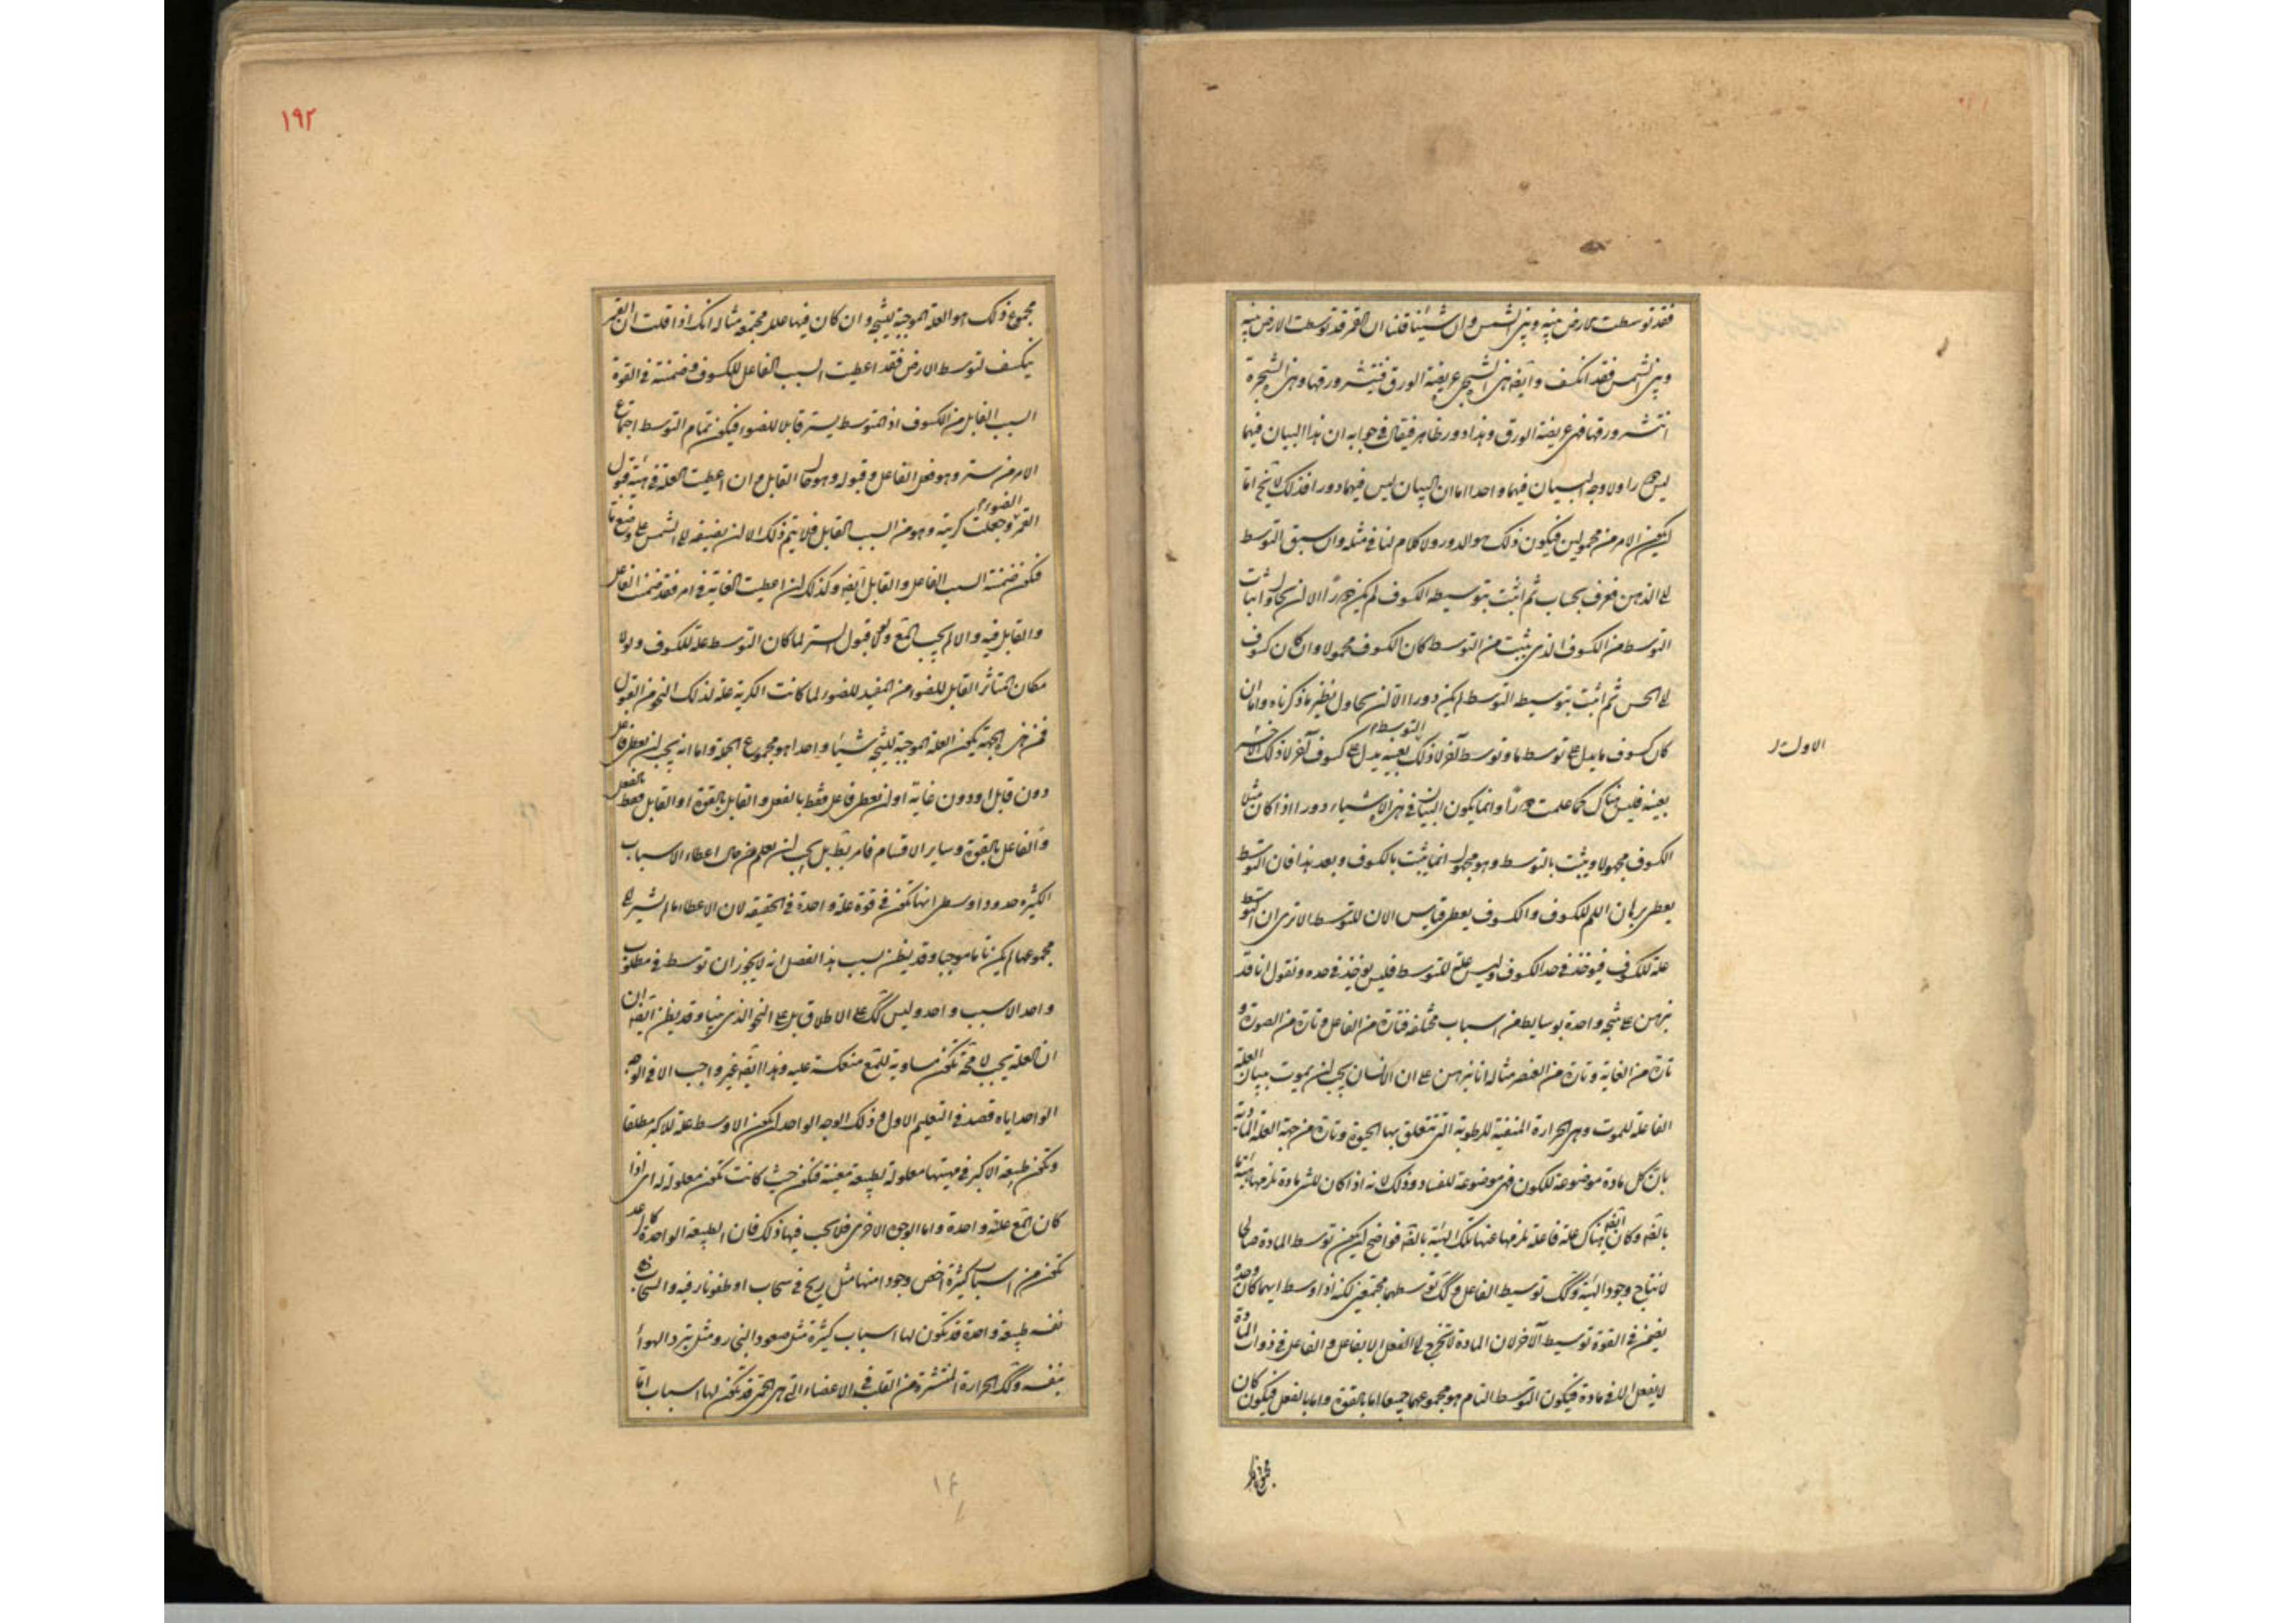 فقد توسطت الارض بينه وبين الشمس وان شئنا قلنا ان القمر قد توسطت الارض بينه
وبين الشمس فقد انكسف وايضا هذه الشجرة عريضة الورق فينتشر ورقها وهذه الشجرة
انتشر ورقها فهى عريضة الورق وهذا دور ظاهر فيقال فى جوابه ان هذا البيان فيهما
ليس دورا ولا وجه البيان فيهما واحدا اما ان البيان ليس فيهما دورا فذلك لانه اما
لكون الامرين مجهولين فيكون ذلك هو الدور ولا كلام لنا فى مثله وان سبق التوسط
الى الذهن فعرف بحساب ثم اثبت بتوسيطه الكسوف لم يكن دورا الا ان يحاول اثبات
التوسط من الكسوف الذى يثبت من التوسط كان الكسوف مجهولا وان كان كسوف
الى الحس ثم اثبت بتوسيط التوسط لم يكن دورا الا ان يحاول نظير ما ذكرناه واما ان
كان كسوف ما يدل على توسط ما وتوسط آخر لا ذلك التوسط بعينه يدل على كسوف آخر لا ذلك الاخير
الاول
بعينه فليس هناك كما علمت دورا وانما يكون البيان فى هذه الاشياء دورا اذا كان مثلا
الكسوف مجهولا ويثبت بالتوسط وهو مجهول انما يثبت بالكسوف وبعد هذا فان التوسط
يعطى برهان اللم للكسوف والكسوف يعطى قياس الان للتوسط الا ترى ان التوسط
علة للكسوف فيؤخذ فى حد الكسوف وليس علة للتوسط فليس يؤخذ فى حده ونقول انا قد
نبرهن على نتيجة واحدة بوسايط من اسباب مختلفة فتارة من الفاعل وتارة من الصورة و
تارة من الغاية وتارة من العنصر مثاله انا نبرهن على ان الانسان يجب ان يموت ببيان العلة
الفاعلة للموت وهى الحرارة المفنية للرطوبة التى تتعلق بها الحيوة وتارة من جهة العلة المادية
بان كل مادة موضوعة للكون فهى موضوعة للفساد وذلك لانه اذا كان للشئ مادة تلزمها هيئة ما
بالقوة وكان ايضا هناك علة فاعلة تلزمها عنها تلك الهيئة بالقوة فواضح ان يكون توسط المادة صالحا
لانتاج وجود الهيئة وكذلك توسيط الفاعل وكذلك توسطهما مجتمعين لكنه اذا وسط ايهما كان وحده
يضمن فى القوة توسيط الآخر لان المادة لا تخرج الى الفعل الا بفاعل والفاعل فى ذوات المادة
لا يفعل الا فى مادة فيكون التوسط التام هو مجموعهما جميعا اما بالقوة واما بالفعل فيكون كان
١٩٢
مجموع ذلك هو العلة الموجبة للنتيجة وان كان فيها علل مجتمعة مثاله انك اذا قلت ان القمر
ينكسف لتوسط الارض فقد اعطيت السبب الفاعل للكسوف وضمنته فى القوة
السبب القابل من الكسوف اذ المتوسط يستر قابلا للضوء فيكون تمام التوسط اجتماع
الامرين ستر وهو فعل الفاعل وقبوله وهو حال القابل وان اعطيت العلة فى هيئة قبول
القمر الضوء وجعلت كريته وهو من السبب القابل فلا يتم ذلك الا ان يضيفه الى الشمس على وضع ما
فيكون ضمنه السبب الفاعل والقابل ايضا وكذلك ان اعطيت الغاية فى امر فقد ضمنت الفاعل
والقابل فيه والا لم يجب المع ولولا قبول الستر لما كان التوسط علة للكسوف ولولا
مكان المتاثر القابل للضوء من المفيد للضوء لما كانت الكرية علة لذلك النحو من القبول
فمن هذه الجهة يكون العلة الموجبة للنتيجة شيئا واحدا هو مجموع الجملة واما انه يجب ان يعطى فاعل
دون قابل او دون غاية او ان يعطى فاعل فقط بالفعل والقابل بالقوة او القابل فقط بالفعل
والفاعل بالقوة وساير الاقسام فامر يبطل بل يجب ان يعلم من حال اعطاء الاسباب
الكثيرة حدودا وسطى انها تكون فى قوة علة واحدة فى الحقيقة لان الاعطاء ما لم يشر الى
مجموعها لم يكن تاما موجبا وقد يظن بسبب هذا الفصل انه لا يجوز ان توسط فى مطلوب
واحد الا سبب واحد وليس كذلك على الاطلاق بل على النحو الذى بينا وقد يظن ايضا ان
ان العلة يجب لا محة تكون مساوية للمع منعكسة عليه وهذا ايضا غير واجب الا فى الوجه
الواحد اياه قصد فى التعليم الاول وذلك الوجه الواحد ان يكون الاوسط علة للاكبر مطلقا
وتكون طبيعة الاكبر فى مهيتها معلولة لطبيعة معينة فتكون حيث كانت تكون معلولة له اى اذا
كان المع علة واحدة واما الوجوه الاخرى فلا يجب فيها ذلك فان الطبيعة الواحدة كالرعد
تكون من اسباب كثيرة اخص وجودا منها مثل ريح فى سحاب او طفو نار فيه والسحاب
نفسه طبيعة واحدة قد يكون لها اسباب كثيرة مثل صعود البخار ومثل تبرد الهواء
بنفسه وكذلك الحرارة المنتشرة من القلب فى الاعضاء التى هى الحمى قد تكون لها اسباب اما